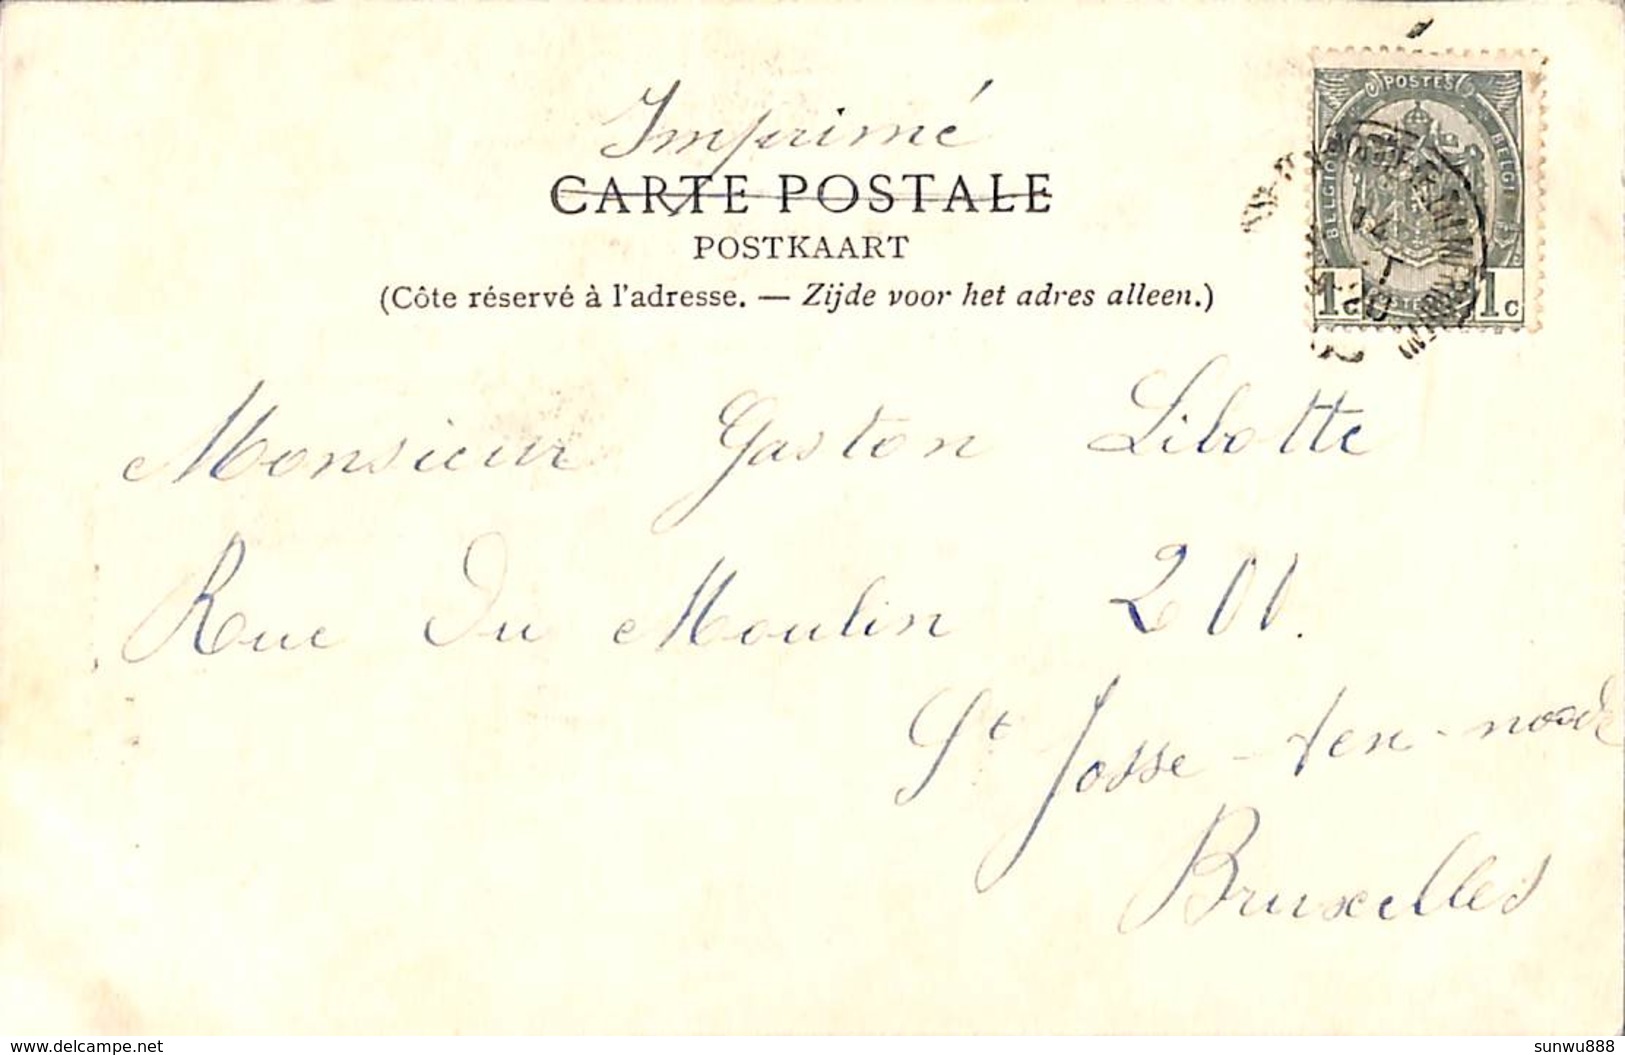 Imprimé
CARTE POSTALE
POSTKAART
(Côte réservé à l'adresse. — Zijde voor het adres alleen.)
POSTES
BELGIQUE
BELGIË
1c
1c
14
Monsieur Gaston Libotte
Rue Du Moulin 201.
St Josse-ten-noode
Bruxelles
www.delcampe.net
sunwu888